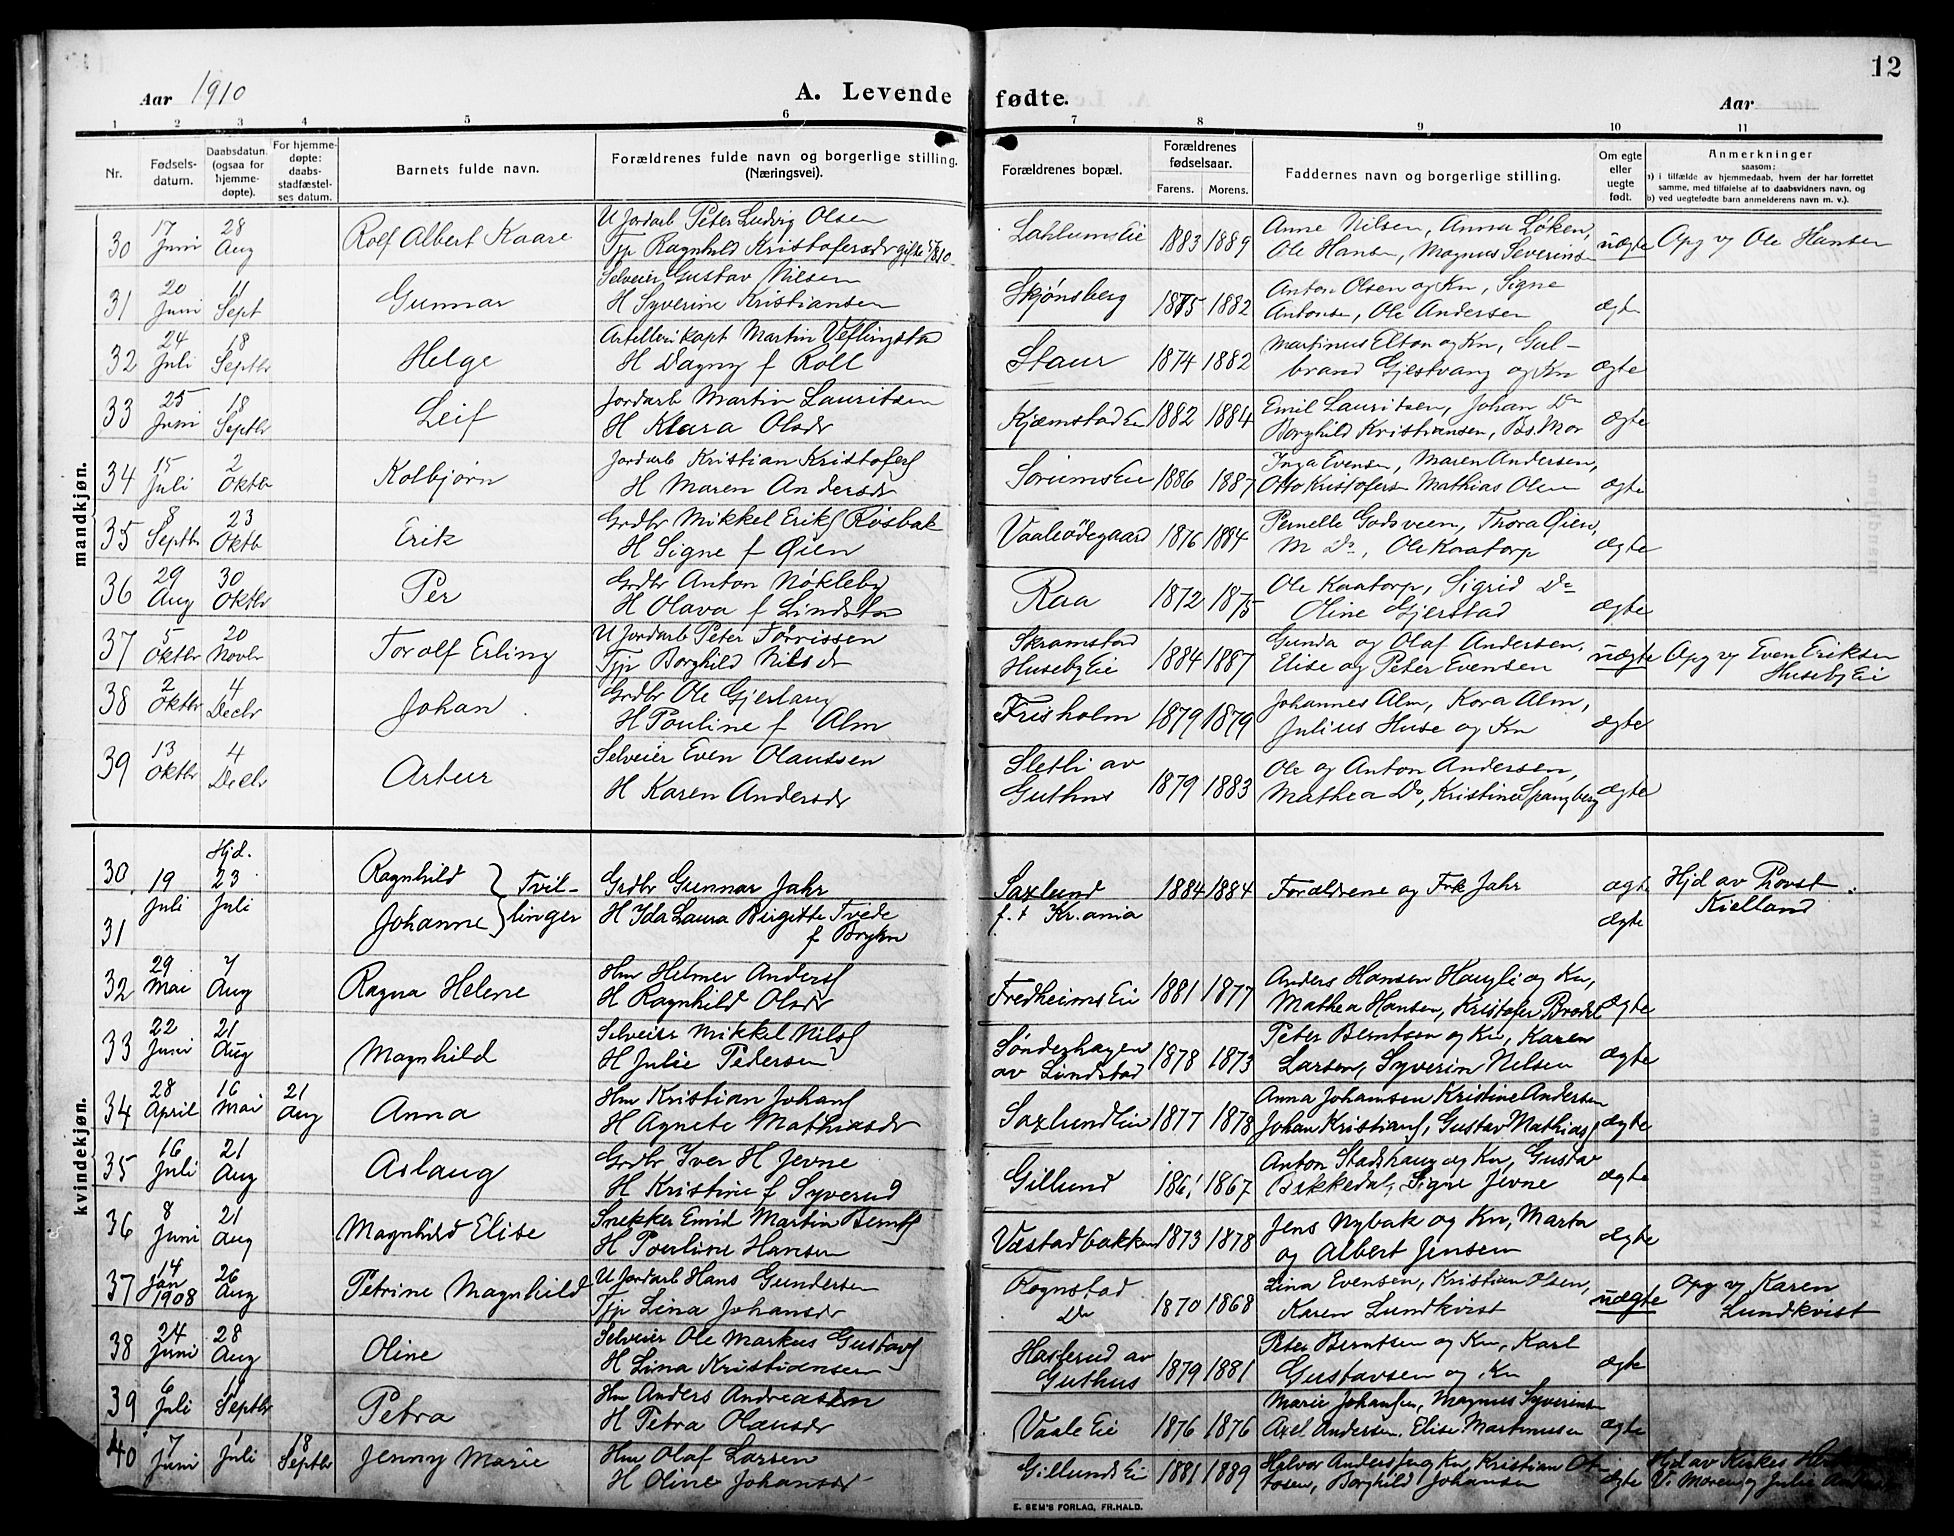 12
Aar 1910
A. Levende fødte.
Aar
1 2 3 4 5 6 7 8 9 10 11
Nr.
Fødsels-
datum.
Daabsdatum.
(ogsaa for
hjemme-
døpte).
For hjemme-
døpte:
daabs-
stadfæstel-
ses datum.
Barnets fulde navn.
Forældrenes fulde navn og borgerlige stilling.
(Næringsvei).
Forældrenes bopæl.
Forældrenes
fødselsaar.
Farens. Morens.
Faddernes navn og borgerlige stilling.
Om egte
eller
uegte
født.
Anmerkninger
saasom:
a) i tilfælde av hjemmedaab, hvem der har forrettet
samme, med tilføielse af to daabsvidners navn, og
b) ved uegtefødte barn anmelderens navn m. v.).
mandkjøn.
30 17 Juni 28 Aug Rolf Albert Kaare U Jordarb Peter Ludvig Olsen 1883 1889 Anne Nilsen, Anna Løken, uægte Opg v Ole Hansen
Tjp Ragnhild Kristofersdr gifte Ole Hansen, Magnus Severinsen
31 20 Juni 11 Sept Gunnar Selveier Gustav Nilsen Skjønsberg 1875 1882 Anton Olsen og Kn, Signe ægte
H Syverine Kristiansen Antonsen, Ole Andersen
32 24 Juli 18 Septbr Helge Artillerikapt Martin Veflingstad Staur 1874 1882 Martinus Elton og Kn, Gul- ægte
H Dagny f Roll brand Gjestvang og Kn
33 25 Juni 18 Septbr Leif Jordarb Martin Lauritsen Kjæmstad Ei 1882 1884 Emil Lauritsen, Johan Do ægte
H Klara Olsdr Borghild Kristiansen, Bs. Mor
34 15 Juli 2 Oktbr Kolbjørn Jordarb Kristian Kristofers Sørums Ei 1886 1887 Inga Evensen, Maren Andersen, ægte
H Maren Andersdr Otto Kristofersn Mathias Olsen
35 8 Septbr 23 Oktbr Erik Grdbr Mikkel Eriks Røsbak Vaaleødegaard 1876 1884 Pernelle Godsveen, Thora Øien, ægte
H Signe f Øien M Do, Ole Kaatorp
36 29 Aug 30 Oktbr Per Grdbr Anton Nøkleby Raa 1872 1875 Ole Kaatorp, Sigrid Do ægte
H Olava f Lindstad Oline Gjerstad
37 5 Oktbr 20 Novbr Torolf Erling U Jordarb Peter Tørrissen Skramstad 1884 1887 Gunda og Olaf Andersen, uægte Opg v Even Eriksen
Tjp Borghild Nilsdr Huseby Ei Elise og Peter Evensen Huseby Ei
38 2 Oktbr 4 Decbr Johan Grdbr Ole Gjerlaug Frisholm 1879 1879 Johannes Alm, Kora Alm, ægte
H Pouline f Alm Julius Huse og Kn
39 13 Oktbr 4 Decbr Artur Selveier Even Olaussen Sletli av 1879 1883 Ole og Anton Andersen, ægte
H Karen Andersdr Guthus Mathea Do, Kristine Spangberg
kvindekjøn.
30 19 Juli Hjd. 23 Juli Ragnhild } Tvil- Grdbr Gunnar Jahr Saxlund 1884 1884 Forældrene og Frk Jahr ægte Hjd av Provst
31 Johanne } linger H Ida Laura Birgitte Tvede f. t Kr.ania ægte Kielland
f Bryhn
32 29 Mai 7 Aug Ragna Helene Hm Helmer Anders Fredheims Ei 1881 1877 Anders Hansen Haugli og Kn, ægte
H Ragnhild Olsdr Mathea Hansen, Kristofer Brodal
33 22 Juni 21 Aug Magnhild Selveier Mikkel Nils Sønderhagen 1878 1873 Peter Berntsen og Kn, Karen ægte
H Julie Pedersen av Lindstad Larsen, Syverin Nelsen
34 28 April 16 Mai 21 Aug Anna Hm Kristian Johans Saxlund Ei 1877 1878 Anna Johansen Kristine Andersen ægte
H Agnete Mathiasdr Johan Kristians, Gustav Mathias
35 16 Juli 21 Aug Aslaug Grdbr Iver H Jevne Gillund 1861 1867 Anton Stadshaug og Kn, Gustav ægte
H Kristine f Syverud Bekkedal, Signe Jevne
36 8 Juni 21 Aug Magnhild Elise Snekker Emil Martin Bernts Væstadbakken 1873 1878 Jens Nybak og Kn, Marta ægte
H Pouline Hansen og Albert Jensen
37 14 Jan 1908 26 Aug Petrine Magnhild U Jordarb Hans Gundersen Rognstad 1870 1868 Lina Evensen, Kristian Olsen, uægte Opg v Karen
Tjp Lina Johansdr Do Karen Lundkvist Lundkvist
38 24 Juni 28 Aug Oline Selveier Ole Markus Gustavs Haslerud av 1879 1881 Peter Berntsen og Kn, Karl ægte
H Lina Kristiansen Guthus Gustavsen og Kn
39 6 Juli 11 Septbr Petra Hm Anders Andreassen Vaale Ei 1876 1876 Marie Johansen, Magnus Syverinsen ægte
H Petra Olausdr Axel Andersen, Elise Martinusen
40 7 Juni 1 Juli 18 Septbr Jenny Marie Hm Olaf Larsen Gillunds Ei 1881 1889 Halvor Andersberg Kn, Kristian Ot- ægte Hjd av Kirkes
H Oline Johansdr tosen, Borghild Johansen V. Moren og Julie
E. SEM'S FORLAG, FR.HALD.